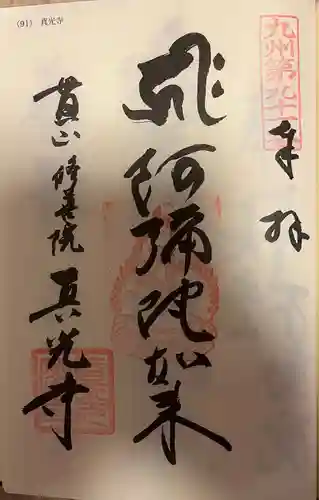 (91) 真光寺
九州第九十一番
奉拝
阿弥陀如来
修善院
真光寺